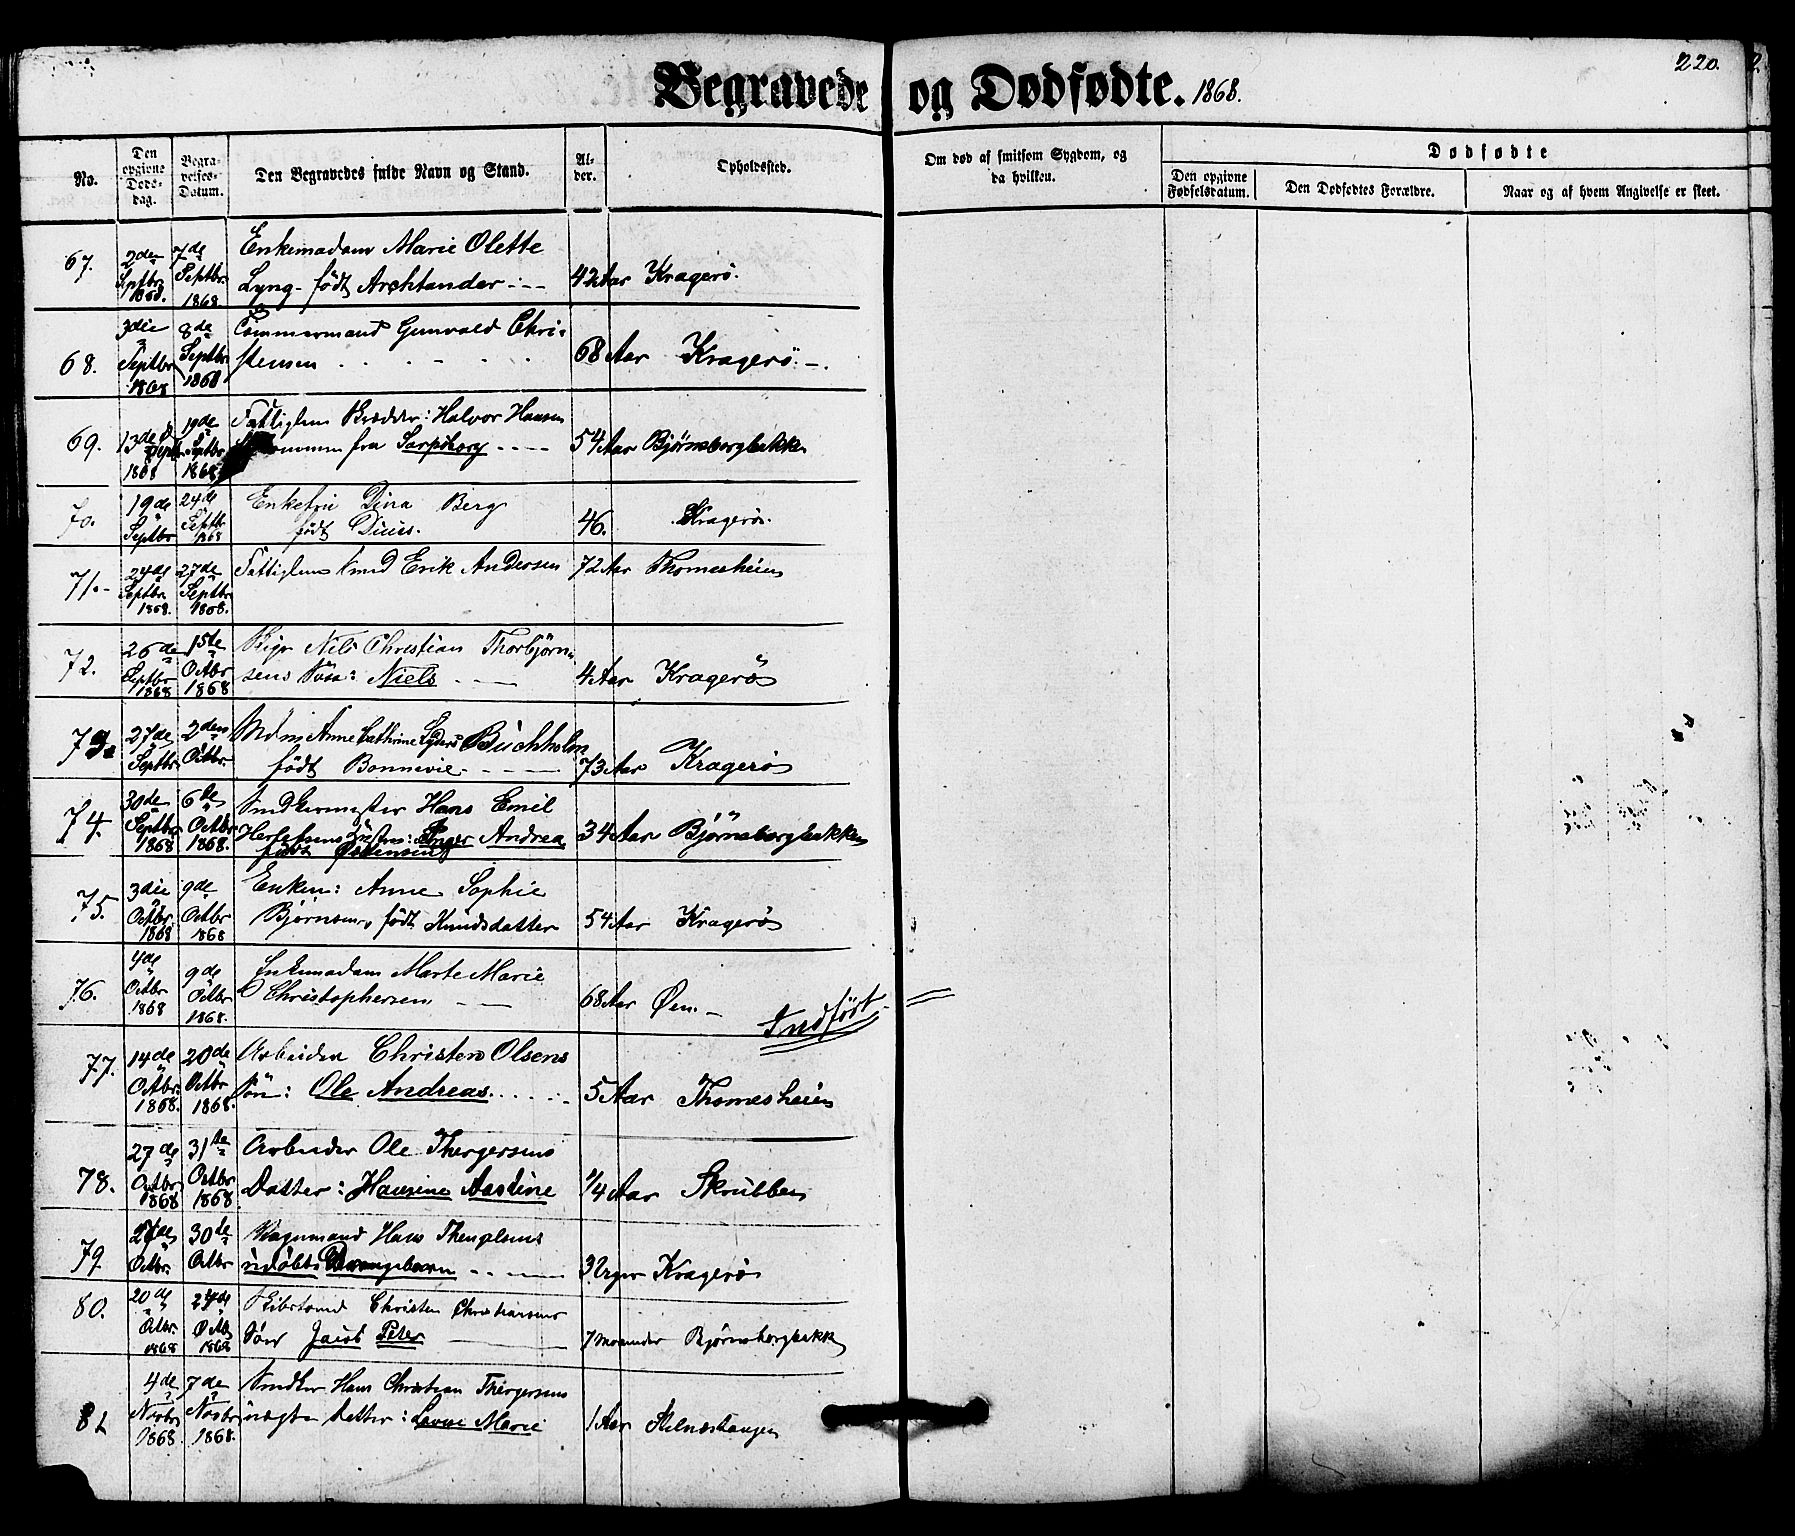 220.
Begravede og Dødfødte. 1868.
No.
Den opgivne Døds-dag.
Begra-velses-Datum.
Den Begravedes fulde Navn og Stand.
Al-der.
Opholdssted.
Om død af smitsom Sygdom, og da hvilken.
Dødfødte
Den opgivne Fødselsdatum.
Den Dødfødtes Forældre.
Naar og af hvem Angivelse er skeet.
67. 2den Septbr 1868. 7de Septbr 1868 Enkemadam Marie Olette
Lyng født Archtander 42 Aar Kragerö.
68. 3die Septbr 1868 8de Septbr 1868 Tömmermand Gunvald Chri-
stensen 68 Aar Kragerö.
69. 13de Septbr 1868 19de Septbr 1868 Fattiglem Halvor Hansen
fra Sarpsborg 54 Aar Bjørnsborgbakken
70. 19de Septbr 24de Septbr 1868 Enkefru Dina Berg
født 46. Kragerö.
71. 24de Septbr 1868. 27de Septbr 1868. Fattiglem Erik Andersen 72 Aar Thomesheien
72. 26de Septbr 1868 15de Octbr 1868 Nils Christian Thorbjørn-
sens Søn: Niels 4 Aar Kragerö
73. 27de Septbr. 2den Octbr. Anne Cathrine Buchholm
født Bonnevie 73 Aar Kragerö
74. 30de Septbr 1868 6te Octbr 1868. Hans Emil
Inger Andrea 34 Aar Bjørnsborgbakken
født
75. 3die Octbr 1868 9de Octbr 1868 Enken: Anne Sophie
Bjørnsen født Knudsdatter 54 Aar Kragerö
76. 4de Octbr 1868 9de Octbr 1868. Enkemadam Marte Marie
Christophersen 68 Aar Øen.
Indført
77. 14de Octbr. 1868. 20de Octbr 1868. Arbeider Christen Olsens
Søn: Ole Andreas. 5 Aar Thomesheien
78. 27de Octbr 1868 31te Octbr 1868 Arbeider Ole Thergersens
Datter: Hansine Aastine 1/4 Aar Skrubben
79. Octbr. 30de Octbr Hans
udøbte Drengebarn 3 Uger Kragerö
80. 20de Octbr. 1868 24de Octbr 1868 Christen Christiansens
Søn Jacob Peter 7 Maaneder Bjørnsborgbakk
81 4de Novbr 1868 7de Novbr 1868. Hans Christian Thergersens
ægte Datter: Marie 1 Aar